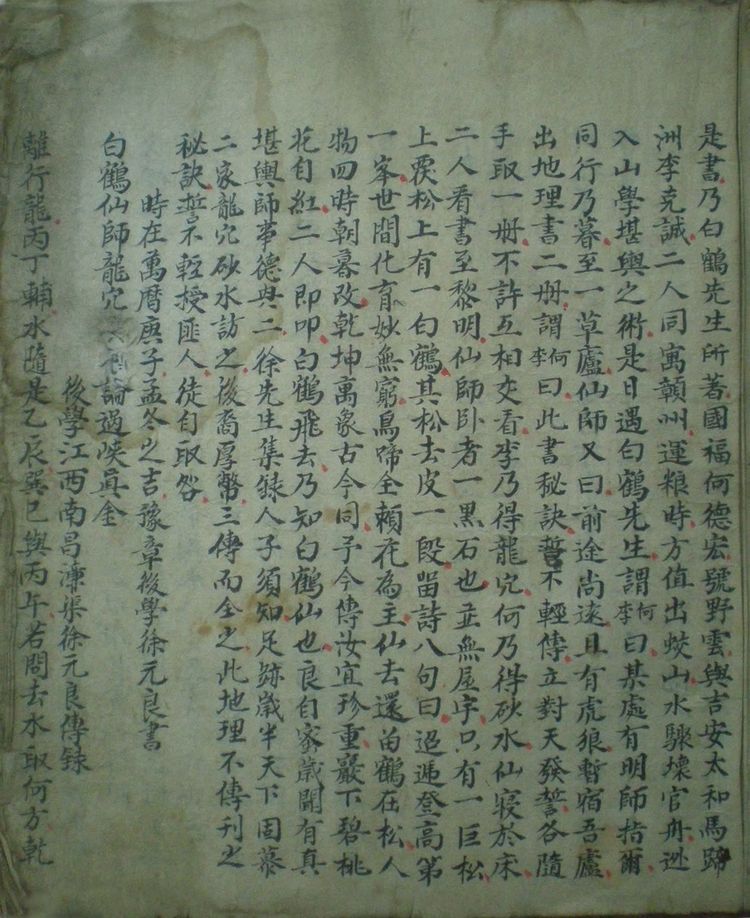 是書乃白鶴先生所著國福何德宏號野雲與吉安太和馬蹄
洲李克誠二人同寓贑州運粮時方值出蛟山水驟壞官舟逃
入山學堪輿之術是日遇白鶴先生謂何李曰某處有明師指爾
同行乃暮至一草廬仙師又曰前途尚遠且有虎狼暫宿吾廬
出地理書二册謂何李曰此書秘訣誓不輕傳立對天發誓各隨
手取一册不許互相交看李乃得龍穴何乃得砂水仙寢於床
二人看書至黎明仙師卧者一黑石也並無屋宇只有一巨松
上覆松上有一白鶴其松去皮一段畱詩八句曰迢遞登高第
一峯世間化育妙無窮鳥啼全賴花為主仙去還畱鶴在松人
物四時朝暮改乾坤萬象古今同予今傳汝宜珍重巖下碧桃
花自紅二人即叩白鶴飛去乃知白鶴仙也良自家歲聞有真
堪輿師事德與二徐先生集錄人子須知足跡歲半天下因慕
二家龍穴砂水訪之後裔厚幣三傳而全之此地理不傳刊之
秘訣誓不輕授匪人徒自取咎
時在萬曆庚子孟冬之吉豫章後學徐元良書
白鶴仙師龍穴論過峽眞金
後學江西南昌漕渠徐元良傳錄
離行龍丙丁輔水隨是乙辰巽巳與丙午若問去水取何方乾